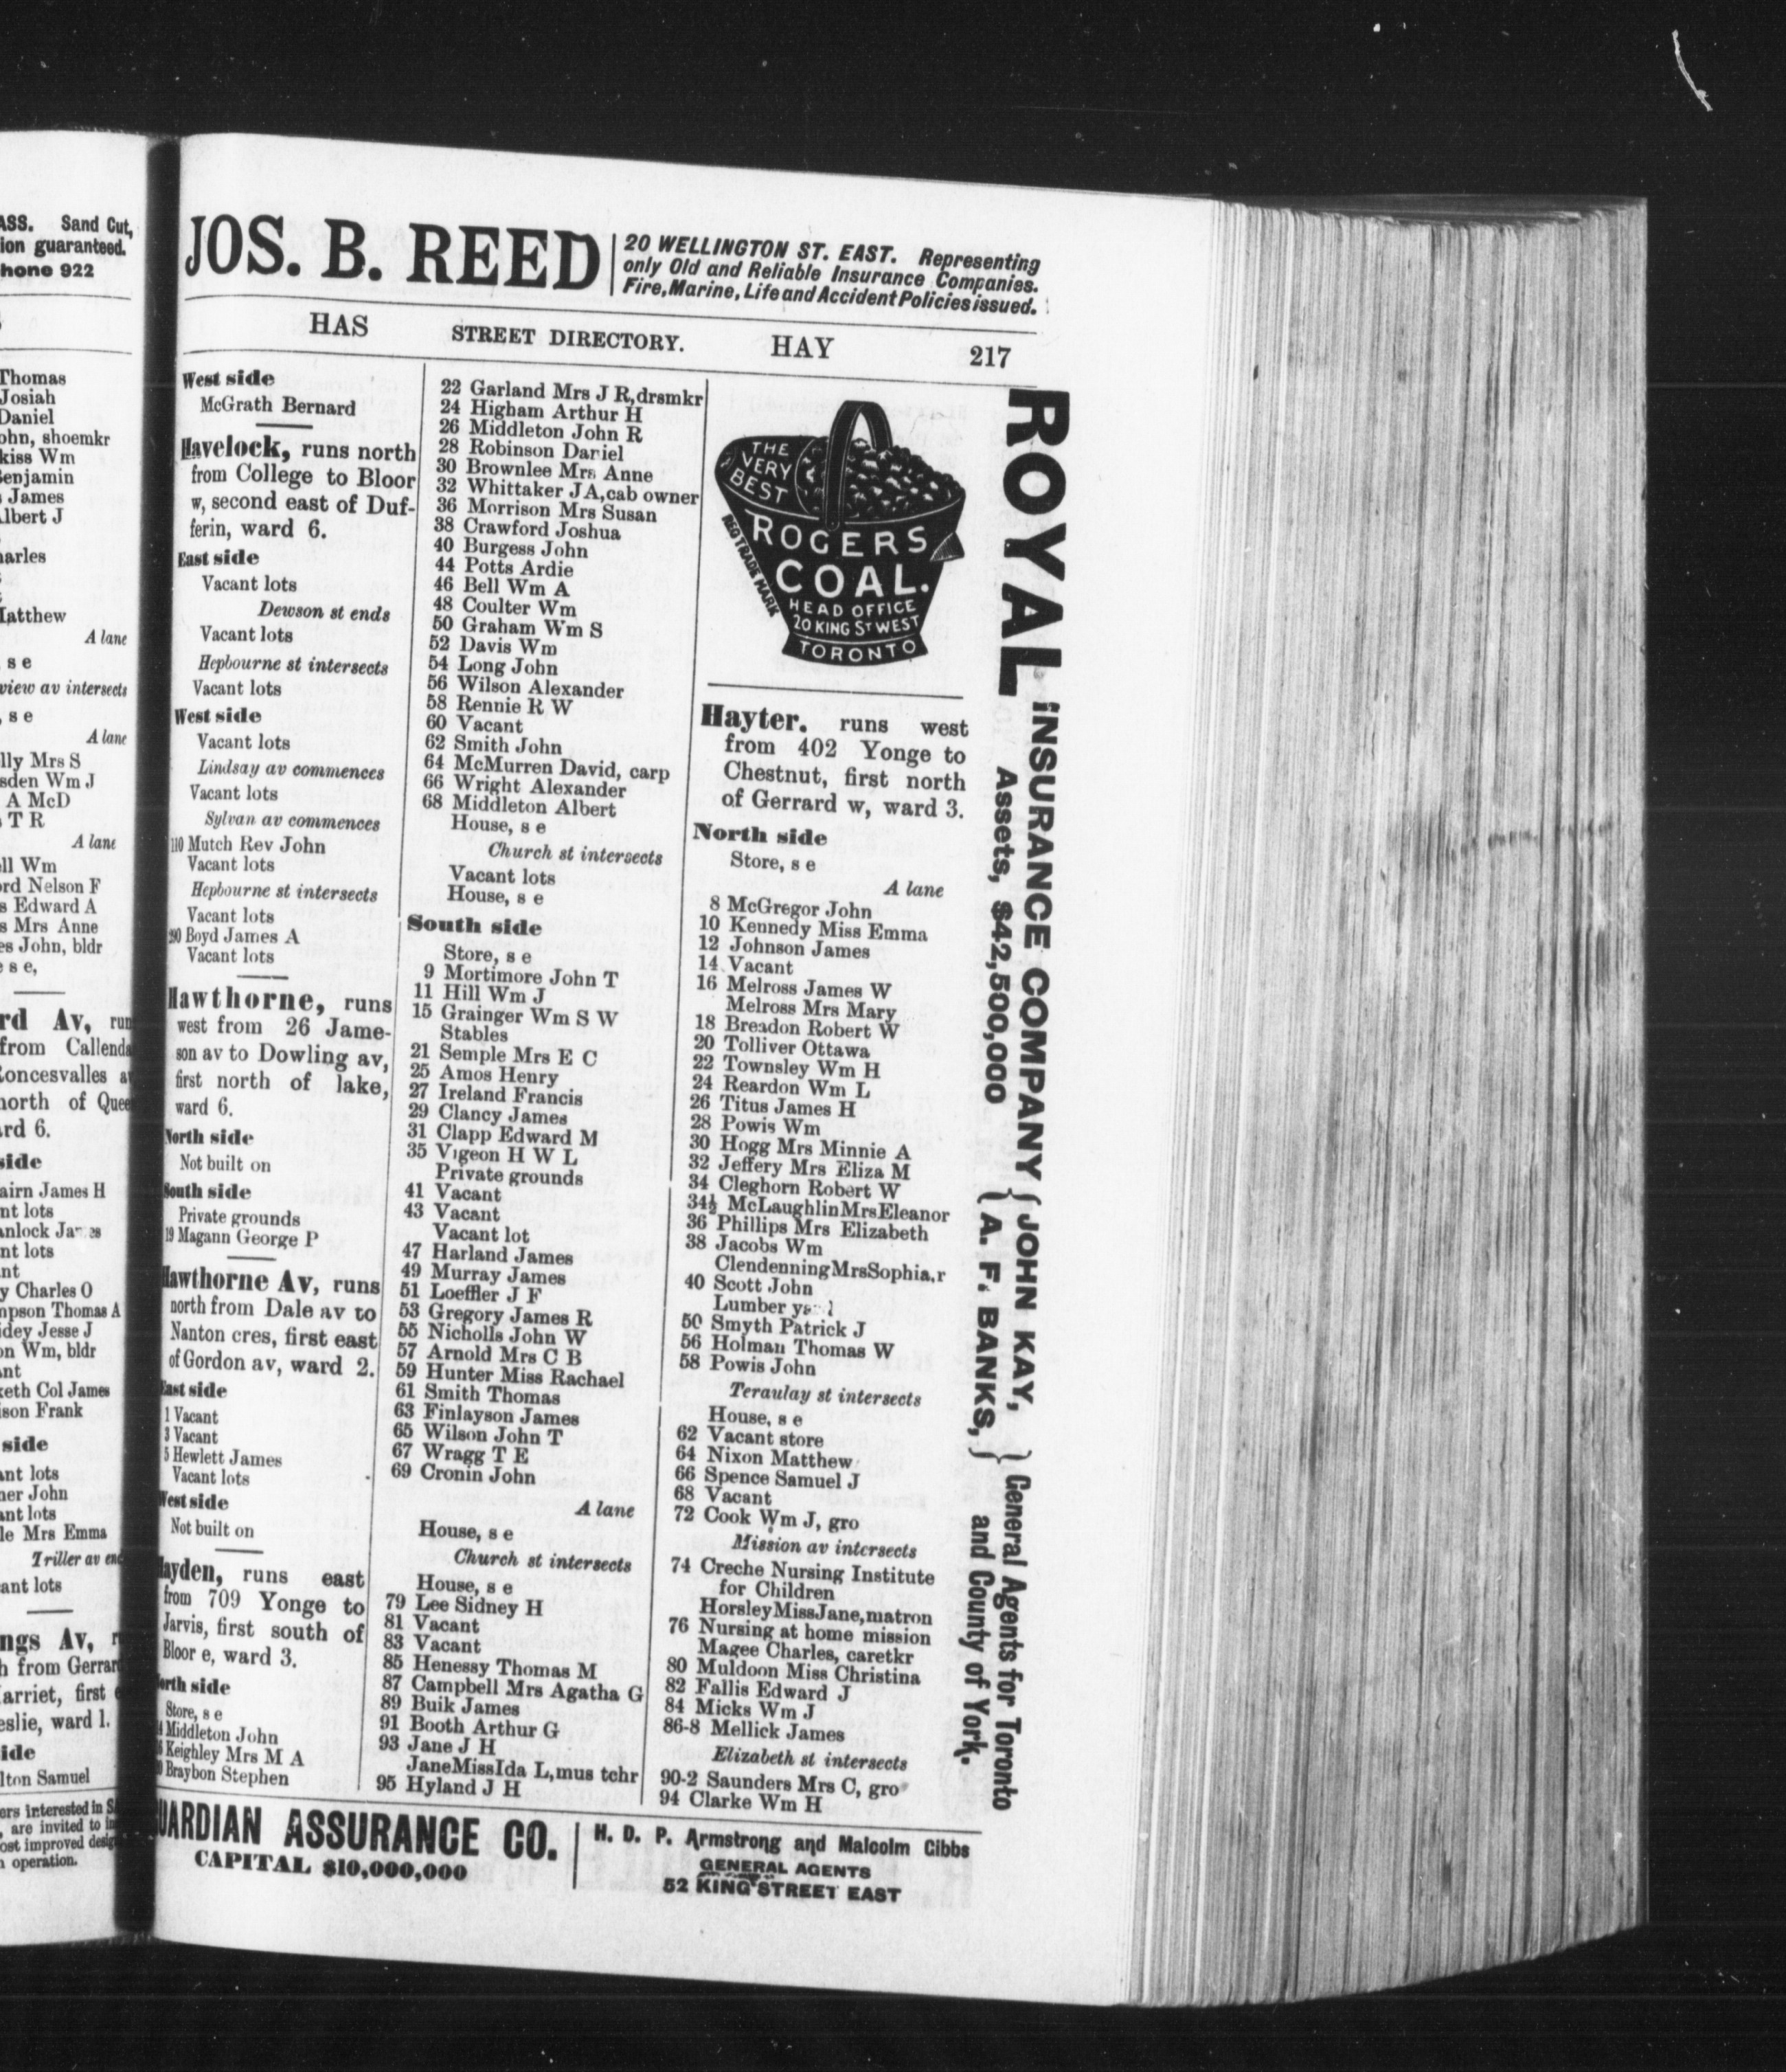 ASS. Sand Cut,
ion guaranteed.
hone 922
Thomas
Josiah
Daniel
ohn, shoemkr
kiss Wm
enjamin
James
lbert J
arles
Matthew
A lane
s e
view av intersects
, s e
A lane
lly Mrs S
sden Wm J
A McD
T R
A lane
ll Wm
ord Nelson F
s Edward A
s Mrs Anne
es John, bldr
s e,
rd Av, run
from Callenda
Roncesvalles av
north of Quee
rd 6.
side
airn James H
nt lots
anlock James
nt lots
nt
y Charles O
mpson Thomas A
idey Jesse J
on Wm, bldr
nt
keth Col James
ison Frank
side
ant lots
ner John
ant lots
le Mrs Emma
Triller av end
ant lots
ngs Av, r
h from Gerrar
arriet, first e
eslie, ward 1.
ide
lton Samuel
ers interested in S
, are invited to in
ost improved desig
n operation.
JOS. B. REED
20 WELLINGTON ST. EAST. Representing
only Old and Reliable Insurance Companies.
Fire, Marine, Life and Accident Policies issued.
HAS STREET DIRECTORY. HAY 217
West side
McGrath Bernard
Havelock, runs north
from College to Bloor
w, second east of Duf-
ferin, ward 6.
East side
Vacant lots
Dewson st ends
Vacant lots
Hepbourne st intersects
Vacant lots
West side
Vacant lots
Lindsay av commences
Vacant lots
Sylvan av commences
110 Mutch Rev John
Vacant lots
Hepbourne st intersects
Vacant lots
290 Boyd James A
Vacant lots
Hawthorne, runs
west from 26 Jame-
son av to Dowling av,
first north of lake,
ward 6.
North side
Not built on
South side
Private grounds
19 Magann George P
Hawthorne Av, runs
north from Dale av to
Nanton cres, first east
of Gordon av, ward 2.
East side
1 Vacant
3 Vacant
5 Hewlett James
Vacant lots
West side
Not built on
Hayden, runs east
from 709 Yonge to
Jarvis, first south of
Bloor e, ward 3.
North side
Store, s e
Middleton John
Keighley Mrs M A
Braybon Stephen
22 Garland Mrs J R, drsmkr
24 Higham Arthur H
26 Middleton John R
28 Robinson Daniel
30 Brownlee Mrs Anne
32 Whittaker J A, cab owner
36 Morrison Mrs Susan
38 Crawford Joshua
40 Burgess John
44 Potts Ardie
46 Bell Wm A
48 Coulter Wm
50 Graham Wm S
52 Davis Wm
54 Long John
56 Wilson Alexander
58 Rennie R W
60 Vacant
62 Smith John
64 McMurren David, carp
66 Wright Alexander
68 Middleton Albert
House, s e
Church st intersects
Vacant lots
House, s e
South side
Store, s e
9 Mortimore John T
11 Hill Wm J
15 Grainger Wm S W
Stables
21 Semple Mrs E C
25 Amos Henry
27 Ireland Francis
29 Clancy James
31 Clapp Edward M
35 Vigeon H W L
Private grounds
41 Vacant
43 Vacant
Vacant lot
47 Harland James
49 Murray James
51 Loeffler J F
53 Gregory James R
55 Nicholls John W
57 Arnold Mrs C B
59 Hunter Miss Rachael
61 Smith Thomas
63 Finlayson James
65 Wilson John T
67 Wragg T E
69 Cronin John
A lane
House, s e
Church st intersects
House, s e
79 Lee Sidney H
81 Vacant
83 Vacant
85 Henessy Thomas M
87 Campbell Mrs Agatha G
89 Buik James
91 Booth Arthur G
93 Jane J H
Jane Miss Ida L, mus tchr
95 Hyland J H
THE
VERY
BEST
ROGERS
COAL.
REG TRADE MARK
HEAD OFFICE
20 KING ST WEST
TORONTO
Hayter. runs west
from 402 Yonge to
Chestnut, first north
of Gerrard w, ward 3.
North side
Store, s e
A lane
8 McGregor John
10 Kennedy Miss Emma
12 Johnson James
14 Vacant
16 Melross James W
Melross Mrs Mary
18 Breadon Robert W
20 Tolliver Ottawa
22 Townsley Wm H
24 Reardon Wm L
26 Titus James H
28 Powis Wm
30 Hogg Mrs Minnie A
32 Jeffery Mrs Eliza M
34 Cleghorn Robert W
34½ McLaughlin Mrs Eleanor
36 Phillips Mrs Elizabeth
38 Jacobs Wm
Clendenning Mrs Sophia, r
40 Scott John
Lumber yard
50 Smyth Patrick J
56 Holman Thomas W
58 Powis John
Teraulay st intersects
House, s e
62 Vacant store
64 Nixon Matthew
66 Spence Samuel J
68 Vacant
72 Cook Wm J, gro
Mission av intersects
74 Creche Nursing Institute
for Children
Horsley Miss Jane, matron
76 Nursing at home mission
Magee Charles, caretkr
80 Muldoon Miss Christina
82 Fallis Edward J
84 Micks Wm J
86-8 Mellick James
Elizabeth st intersects
90-2 Saunders Mrs C, gro
94 Clarke Wm H
ROYAL INSURANCE COMPANY { JOHN KAY, } General Agents for Toronto
Assets, $42,500,000 { A. F. BANKS, } and County of York.
UARDIAN ASSURANCE CO.
CAPITAL $10,000,000
H. D. P. Armstrong and Malcolm Gibbs
GENERAL AGENTS
52 KING STREET EAST